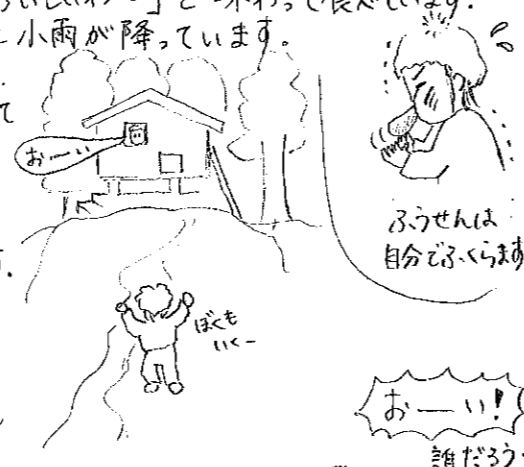 おいしいわ〜」と味わって食べています。
小雨が降っています。
て
おーい
ふうせんは
自分でふくらます
ぼくも
いくー
おーい!
誰だろう